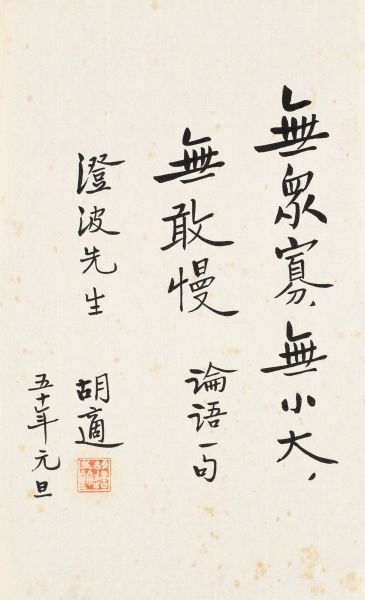 無眾寡，無小大，
無敢慢
論語一句
澄波先生
胡適
五十年元旦